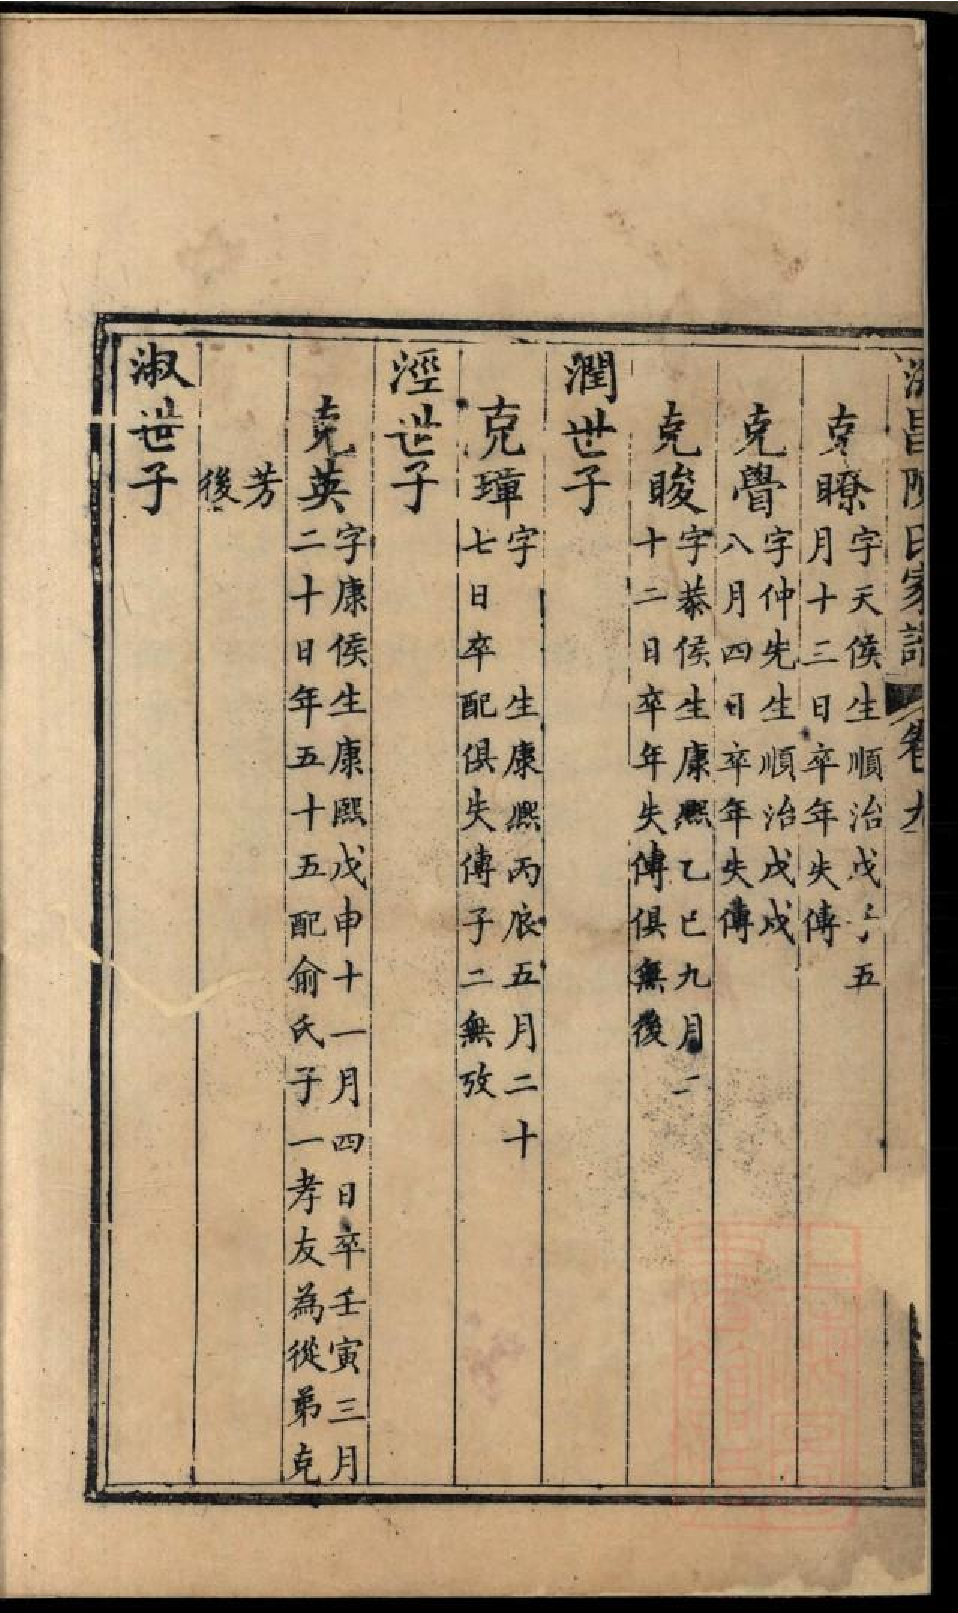 昌陳氏家譜 卷九
克瞭 字天侯生順治戊子五
月十三日卒年失傳
克覺 字仲先生順治戊戌
八月四日卒年失傳
克晙 字恭侯生康熙乙巳九月二
十二日卒年失傳俱無後
潤世子
克璋 字 生康熙丙辰五月二十
七日卒配俱失傳子二無攷
涇世子
克英 字康侯生康熙戊申十一月四日卒壬寅三月
二十日年五十五配俞氏子一孝友為從弟克
芳
後
淑世子